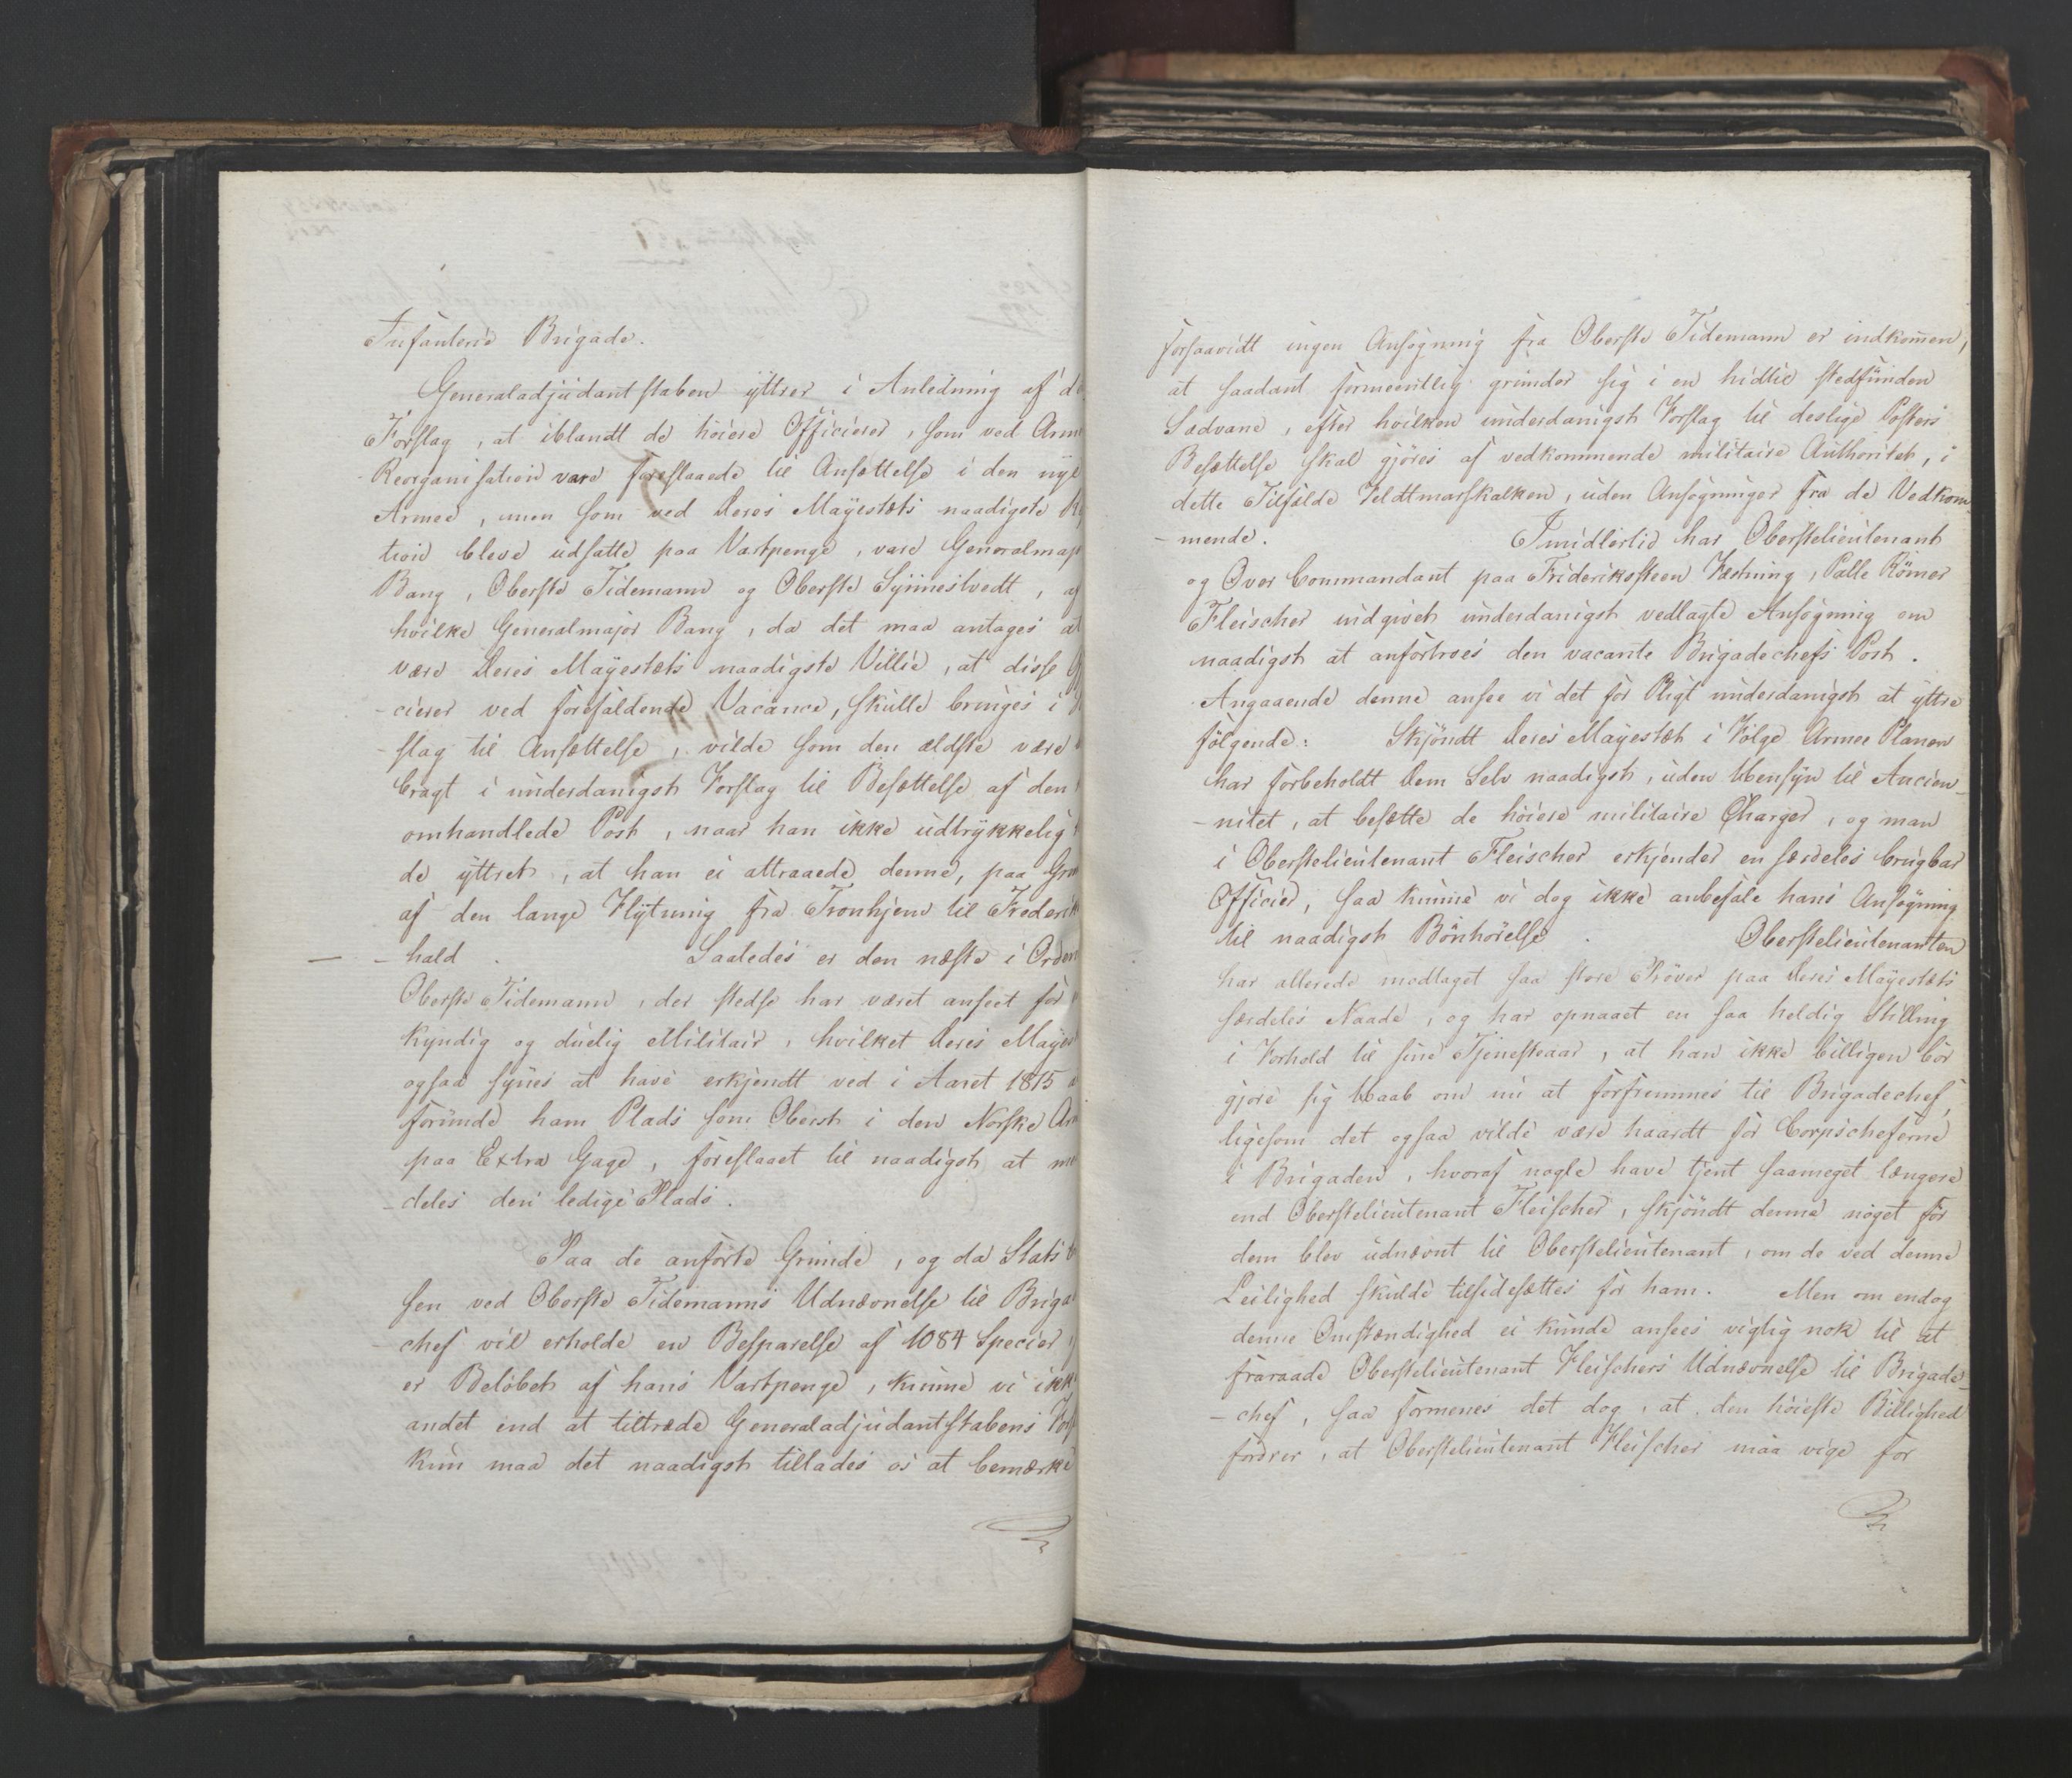 Infanterie Brigade.
Generaladjudantstaben yttrer i Anledning af d
Forslag, at iblandt de høiere Officierer, som ved Arm
Reorganisation vare foreslaaede til Ansættelse i den nye
Armee, men som ved Deres Mayestæts naadigste R
tion bleve udsatte paa Vartpenge, vare Generalmaj
Bang, Oberste Tidemann og Oberste Synnestvedt, af
hvilke Generalmajor Bang, da det maa antages at
være Deres Mayestæts naadigste Villie, at disse Off
-cierer ved forefaldende Vacance, skulle bringes i F
-slag til Ansættelse, vilde som den ældste være
bragt i underdanigst Forslag til Besættelse af den
omhandlede Post, naar han ikke udtrykkelig
de yttret, at han ei attraaede denne, paa Grun
af den lange Flytning fra Tronhjem til Frederiks
-hald. Saaledes er den næste i Orden
Oberste Tidemann, der stedse har været anseet for
kyndig og duelig Militair, hvilket Deres Mayes
ogsaa synes at have erkjendt ved i Aaret 1815 a
forunde ham Plads som Oberst i den Norske Arm
paa Extra Gage, foreslaaet til naadigst at med
-deles den ledige Plads.
Paa de anførte Grunde, og da Stats
sen ved Oberste Tidemanns Udnævnelse til Briga
chef vil erholde en Besparelse af 1084 Specier,
er Beløbet af hans Vartpenge, kunne vi ikke
andet end at tiltræde Generaladjudantstabens Fors
kun maa det naadigst tillades os at bemærke
forsaavidt ingen Ansøgning fra Oberste Tidemann er indkommen,
at saadant formeentlig grunder sig i en hidtil stedfunden
Sædvane, efter hvilken underdanigst Forslag til deslige Posters
Besættelse skal gjøres af vedkommende militaire Authoritet, i
dette Tilfælde Feldtmarskalken, uden Ansøgninger fra de Vedkom-
-mende. Imidlertid har Oberstelieutenant
og Over Commandant paa Frideriksteen Fæstning, Palle Römer
Fleischer indgivet underdanigst vedlagte Ansøgning om
naadigst at anfortroes den vacante Brigadechefs Post.
Angaaende denne ansee vi det for Pligt underdanigst at yttre
følgende: Skjøndt Deres Mayestæt i Følge Armee Planen
har forbeholdt Dem Selv naadigst, uden Hensyn til Ancien-
-nitet, at besætte de høiere militaire Charger, og man
i Oberstelieutenant Fleischer erkjender en særdeles brugbar
Officier, saa kunne vi dog ikke anbefale hans Ansøgning
til naadigst Bönhørelse. Oberstelieutenanten
har allerede modtaget saa store Prøver paa Deres Mayestæts
særdeles Naade, og har opnaaet en saa heldig Stilling
i Forhold til sine Tjenesteaar, at han ikke billigen bør
gjøre sig Haab om nu at forfremmes til Brigadechef,
ligesom det ogsaa vilde være haardt for Corpscheferne
i Brigaden, hvoraf nogle have tjent saameget længere
end Oberstelieutenant Fleischer, skjøndt denne noget før
dem blev udnævnt til Oberstelieutenant, om de ved denne
Leilighed skulde tilsidesættes for ham. Men om endog
denne Omstændighed ei kunde ansees vigtig nok til at
fraraade Oberstelieutenant Fleischers Udnævnelse til Brigade-
-chef, saa formenes det dog, at den høieste Billighed
fordrer, at Oberstelieutenant Fleischer maa vige for